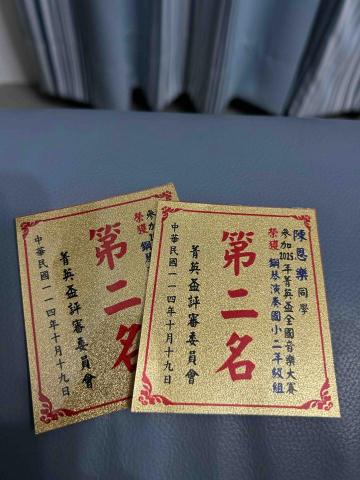 陳恩樂 同學
參加2025年菁英盃全國音樂大賽
榮獲 鋼琴演奏國小二年級組
第二名
菁英盃評審委員會
中華民國一一四年十月十九日
參加
榮獲 鋼琴
第二名
菁英盃評審委員會
中華民國一一四年十月十九日